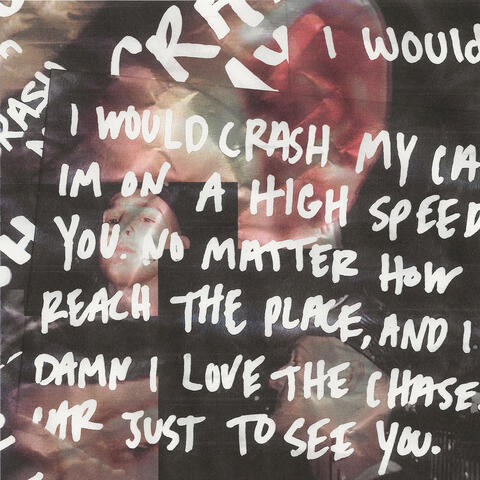 CRA
I WOULD
RASH
I WOULD CRASH MY CA
IM ON A HIGH SPEED
YOU. NO MATTER HOW
REACH THE PLACE, AND I
DAMN I LOVE THE CHASE.
CAR JUST TO SEE YOU.